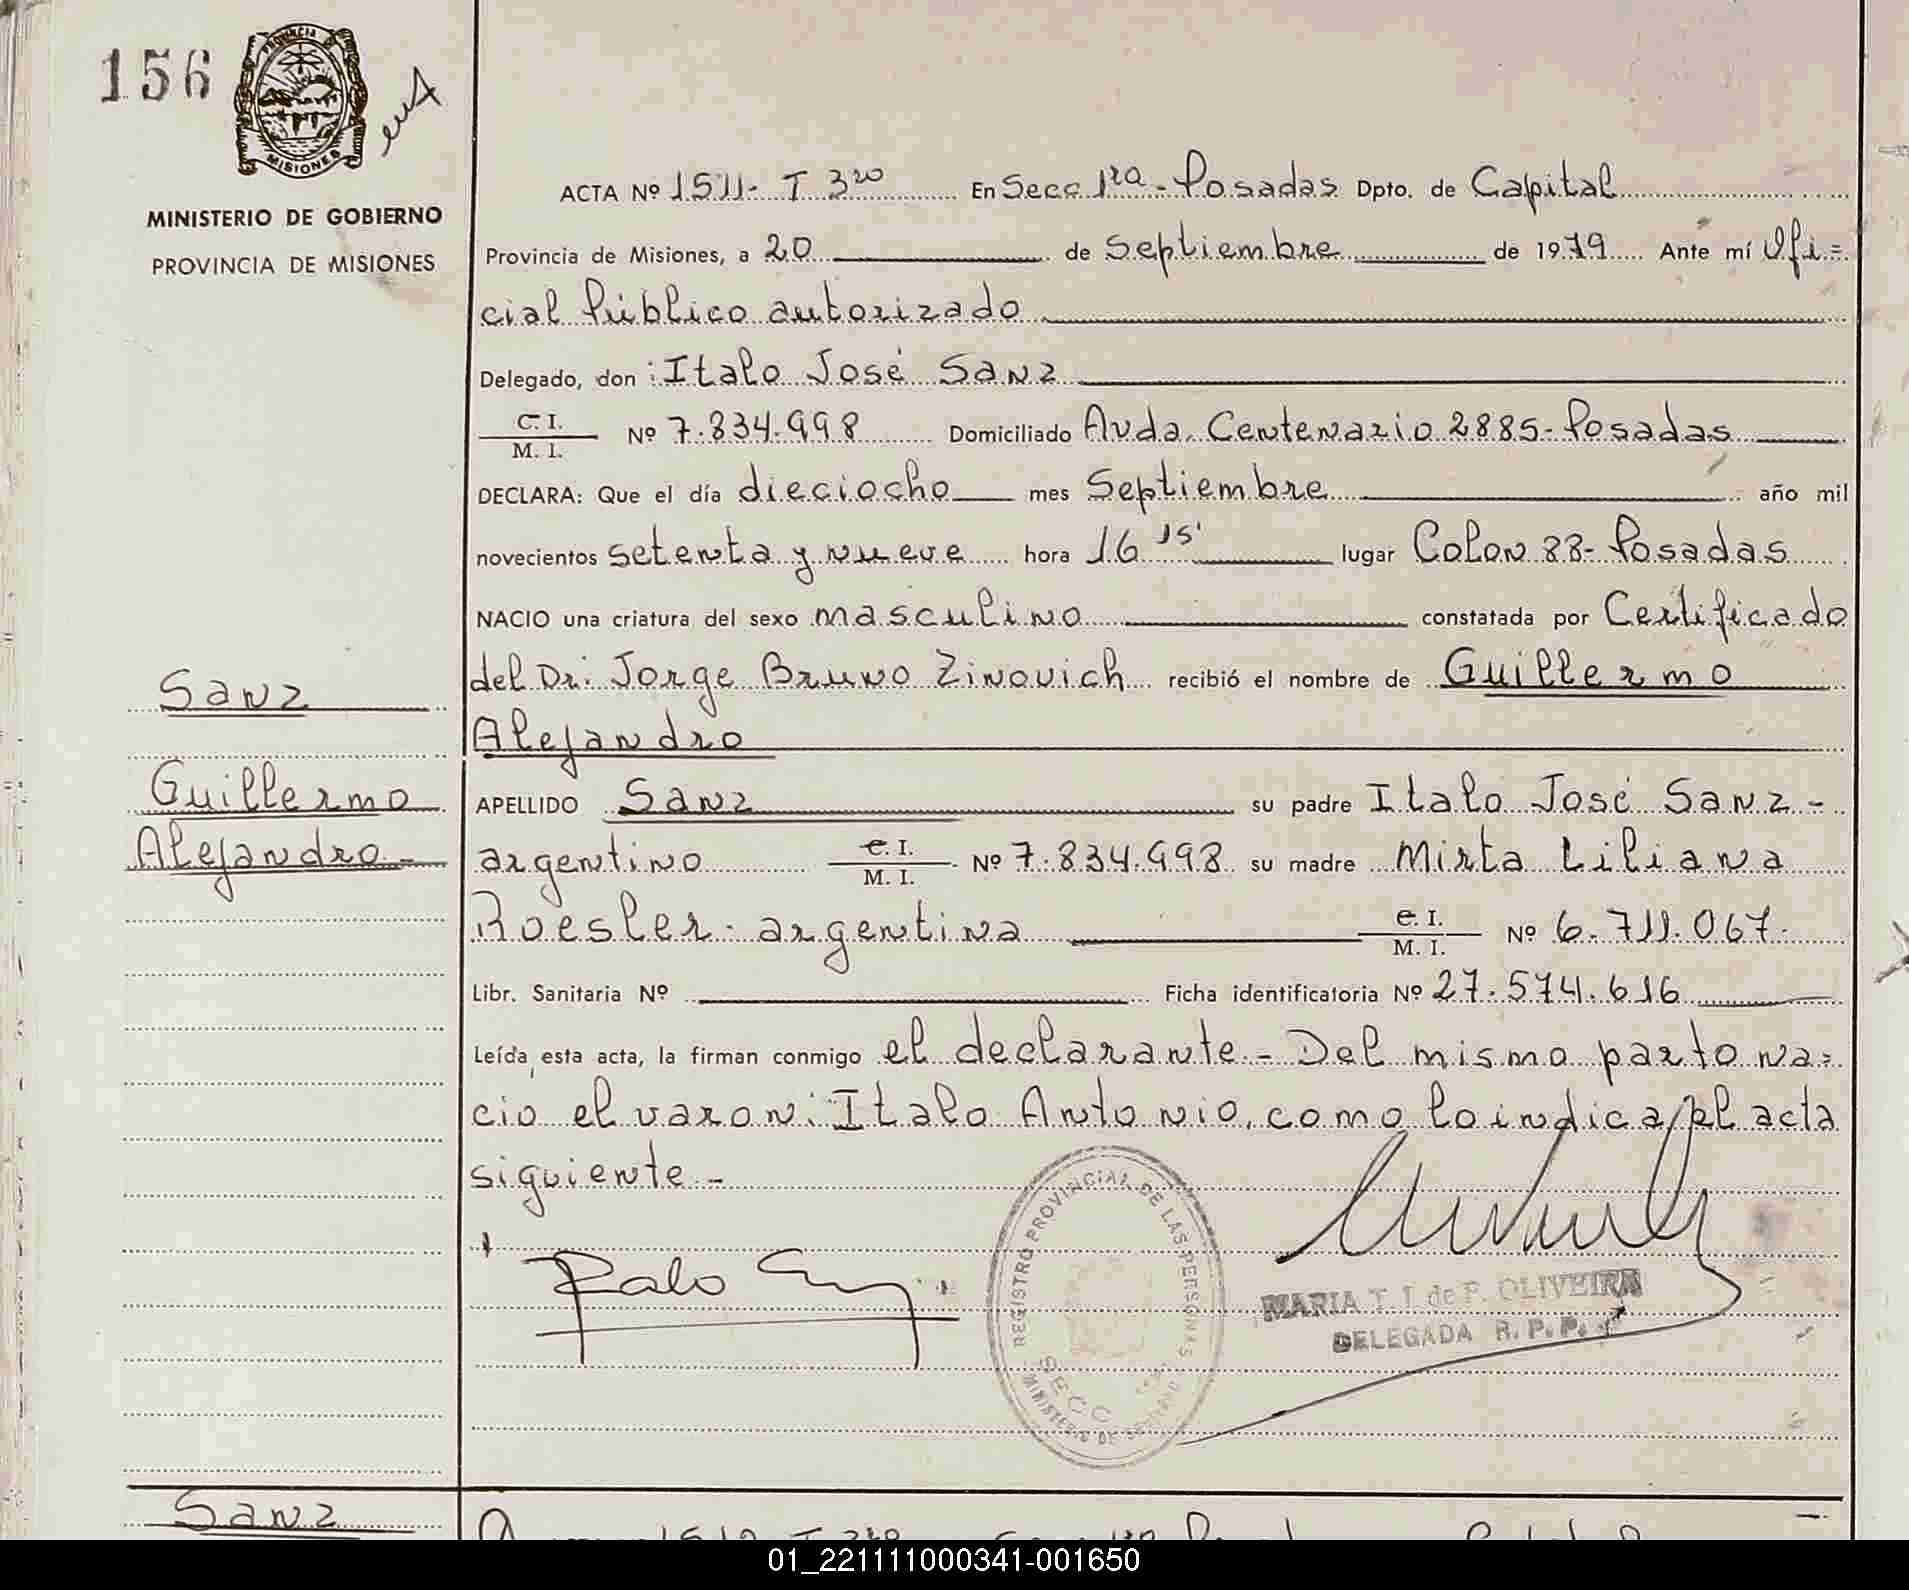 156
PROVINCIA DE
MISIONES
MINISTERIO DE GOBIERNO
PROVINCIA DE MISIONES
ACTA Nº 1511- T 3ro En Secc 1ra - Posadas Dpto. de Capital
Provincia de Misiones, a 20 de Septiembre de 1979 Ante mí Ofi=
cial Público autorizado
Delegado, don : Italo José Sanz
C. I.
M. I. Nº 7.834.998 Domiciliado Avda. Centenario 2885- Posadas
DECLARA: Que el día dieciocho mes Septiembre año mil
novecientos setenta y nueve hora 16 15' lugar Colon 88- Posadas
NACIO una criatura del sexo masculino constatada por Certificado
del Dr: Jorge Bruno Zinovich recibió el nombre de Guillermo
Alejandro
Sanz
Guillermo
Alejandro -
APELLIDO Sanz su padre Italo José Sanz -
argentino C. I.
M. I. Nº 7.834.998 su madre Mirta Liliana
Roesler - argentina C. I.
M. I. Nº 6.711.067-
Libr. Sanitaria Nº Ficha identificatoria Nº 27.574.616
Leída esta acta, la firman conmigo el declarante - Del mismo parto na=
cio el varon: Italo Antonio, como lo indica el acta
siguiente -
REGISTRO PROVINCIAL DE LAS PERSONAS
SECC
MINISTERIO DE
MARIA T. I. de P. OLIVEIRA
DELEGADA R. P. P.
Sanz
01_221111000341-001650